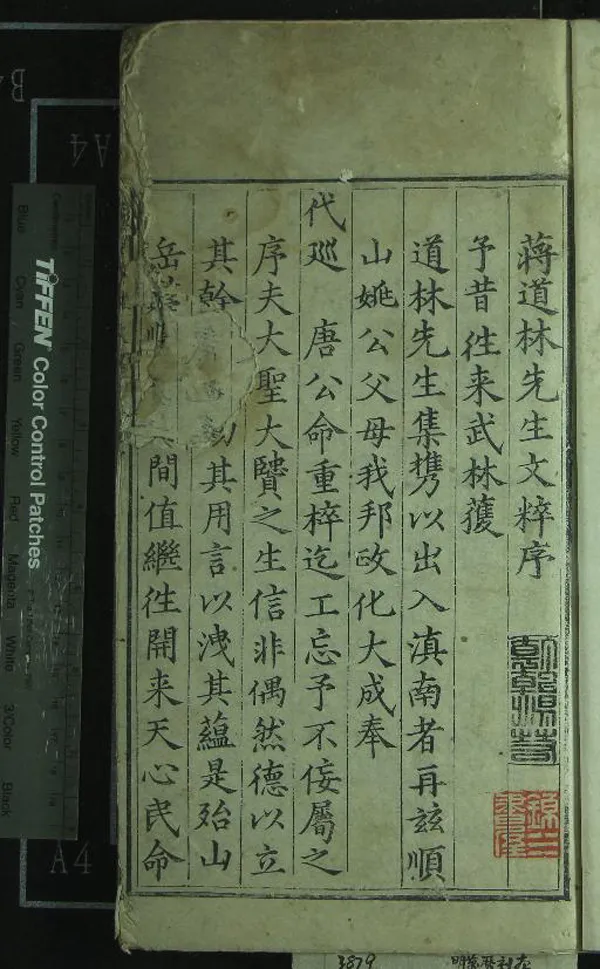 蔣道林先生文粹序
予昔徃来武林獲
道林先生集擕以出入滇南者再玆順
山姚公父母我邦政化大成奉
代巡 唐公命重梓迄工忘予不侫屬之
序夫大聖大賢之生信非偶然德以立
其幹其用言以洩其蘊是殆山
岳間值繼徃開来天心民命
TIFFEN Color Control Patches
Blue
Cyan
Green
Yellow
Red
Magenta
White
3/Color
Black
A4
A4
B4
3879